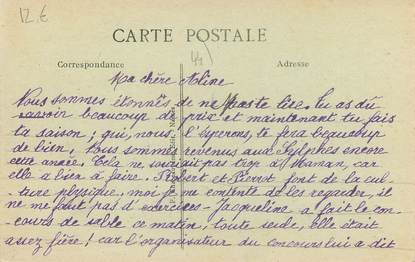 12 €
44)
CARTE POSTALE
Correspondance
Adresse
Ma chère Aline
Nous sommes étonnés de ne pas te lire. Tu as dû
beaucoup de prix et maintenant tu fais
ta saison; qui, nous l'espérons, te fera beaucoup
de bien. Nous sommes revenus aux Sylphes encore
cette année. Cela ne souriait pas trop à Maman, car
elle a bien à faire. Robert et Pierrot font de la cul-
ture physique, moi je me contente de les regarder, il
ne me faut pas d'exercices - Jacqueline a fait le con-
cours de sable ce matin, toute seule, elle était
assez fière! car l'organisateur du concours lui a dit